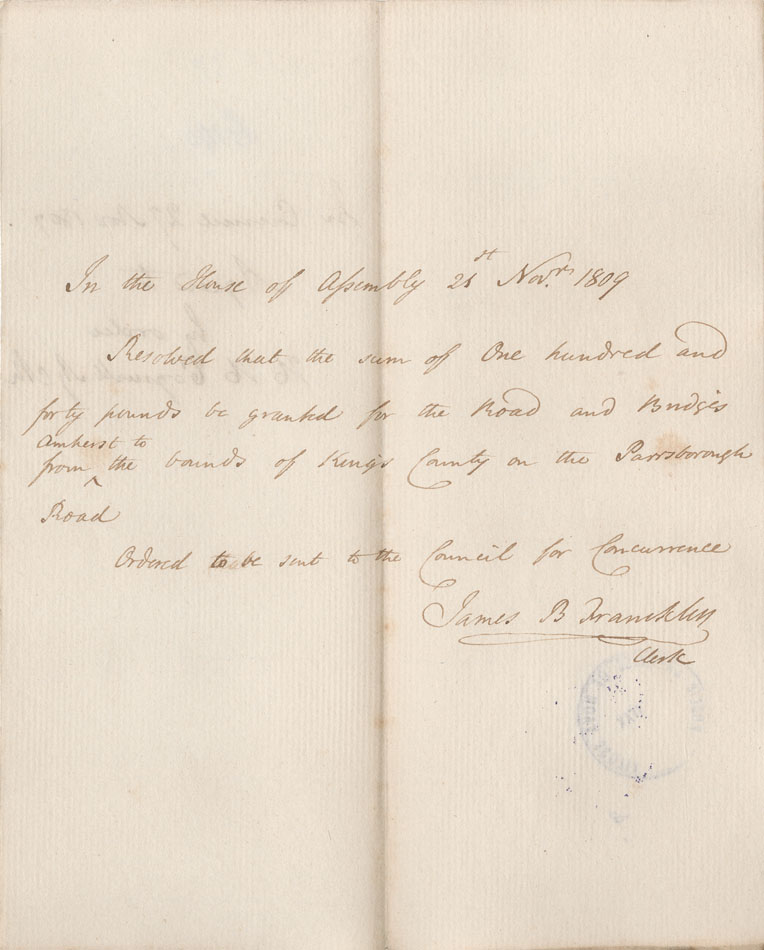 In the House of Assembly 21st Novr. 1809
Resolved that the sum of One hundred and
forty pounds be granted for the Road and Bridges
Amherst to
from ^ the bounds of Kings County on the Parrsborough
Road
Ordered to be sent to the Council for Concurrence
James B Franklin
Clerk